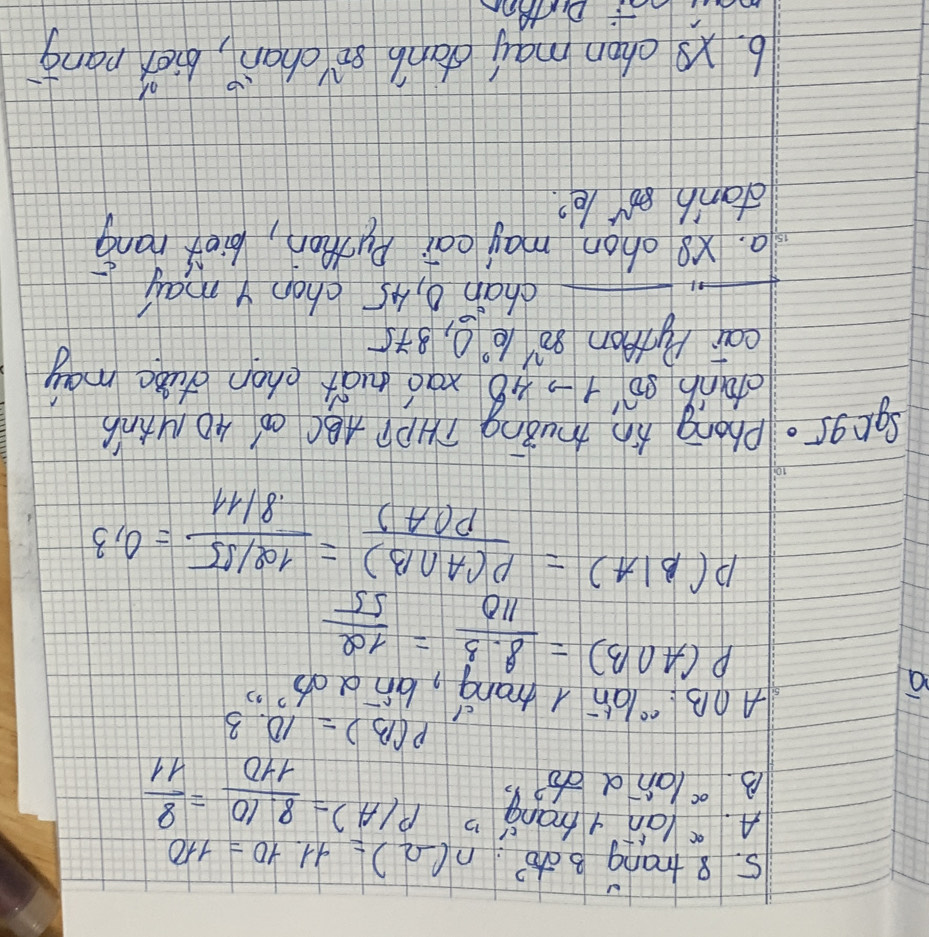 5. 8 trắng 3 đỏ : n(Ω) = 11.10 = 110
A. "lần 1 trắng" P(A) = 8.10/110 = 8/11
B. "lần 2 đỏ"
P(B) = 10.3
A∩B: "lần 1 trắng, lần 2 đỏ"
P(A∩B) = 8.3/110 = 12/55
P(B|A) = P(A∩B)/P(A) = 12/55/8/11 = 0,3
Sgk 95 • Phòng tin trường THPT ABC có 40 M tính
đánh số 1 → 40 xác suất chọn được máy
cài Python số lẻ 0,375
— " — chẵn 0,45 chọn 1 máy
a. XS chọn máy cài Python, biết rằng
đánh số lẻ?
b. XS chọn máy đánh số chẵn, biết rằng
máy cài Python